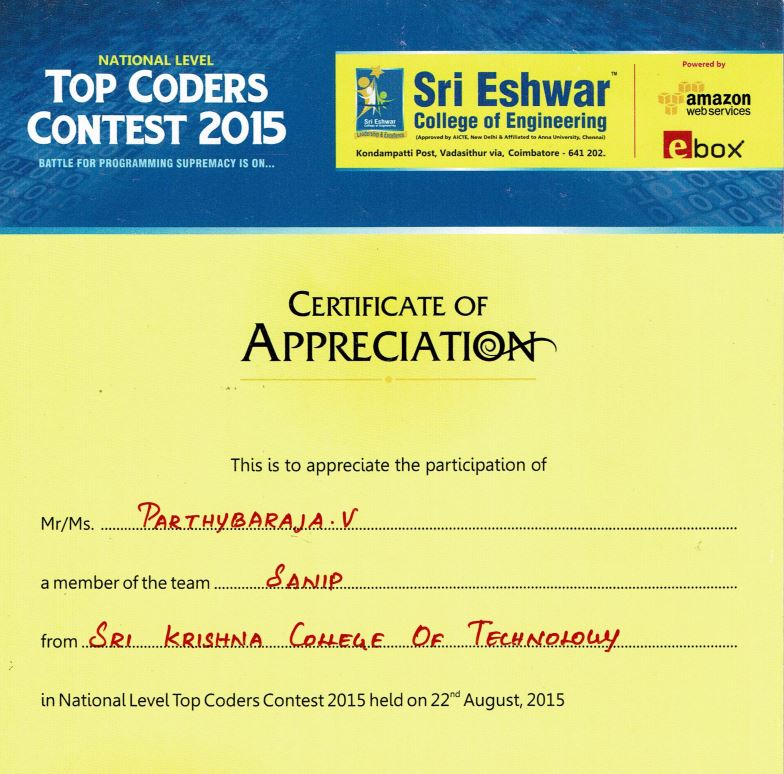 NATIONAL LEVEL
TOP CODERS
CONTEST 2015
BATTLE FOR PROGRAMMING SUPREMACY IS ON...
Sri Eshwar
College of Engineering
Leadership & Excellence
Sri Eshwar™
College of Engineering
(Approved by AICTE, New Delhi & Affiliated to Anna University, Chennai)
Kondampatti Post, Vadasithur via, Coimbatore - 641 202.
Powered by
amazon
web services
ebox
CERTIFICATE OF
APPRECIATION
This is to appreciate the participation of
Mr/Ms. PARTHYBARAJA.V
a member of the team SANIP
from SRI KRISHNA COLLEGE OF TECHNOLOGY
in National Level Top Coders Contest 2015 held on 22nd August, 2015